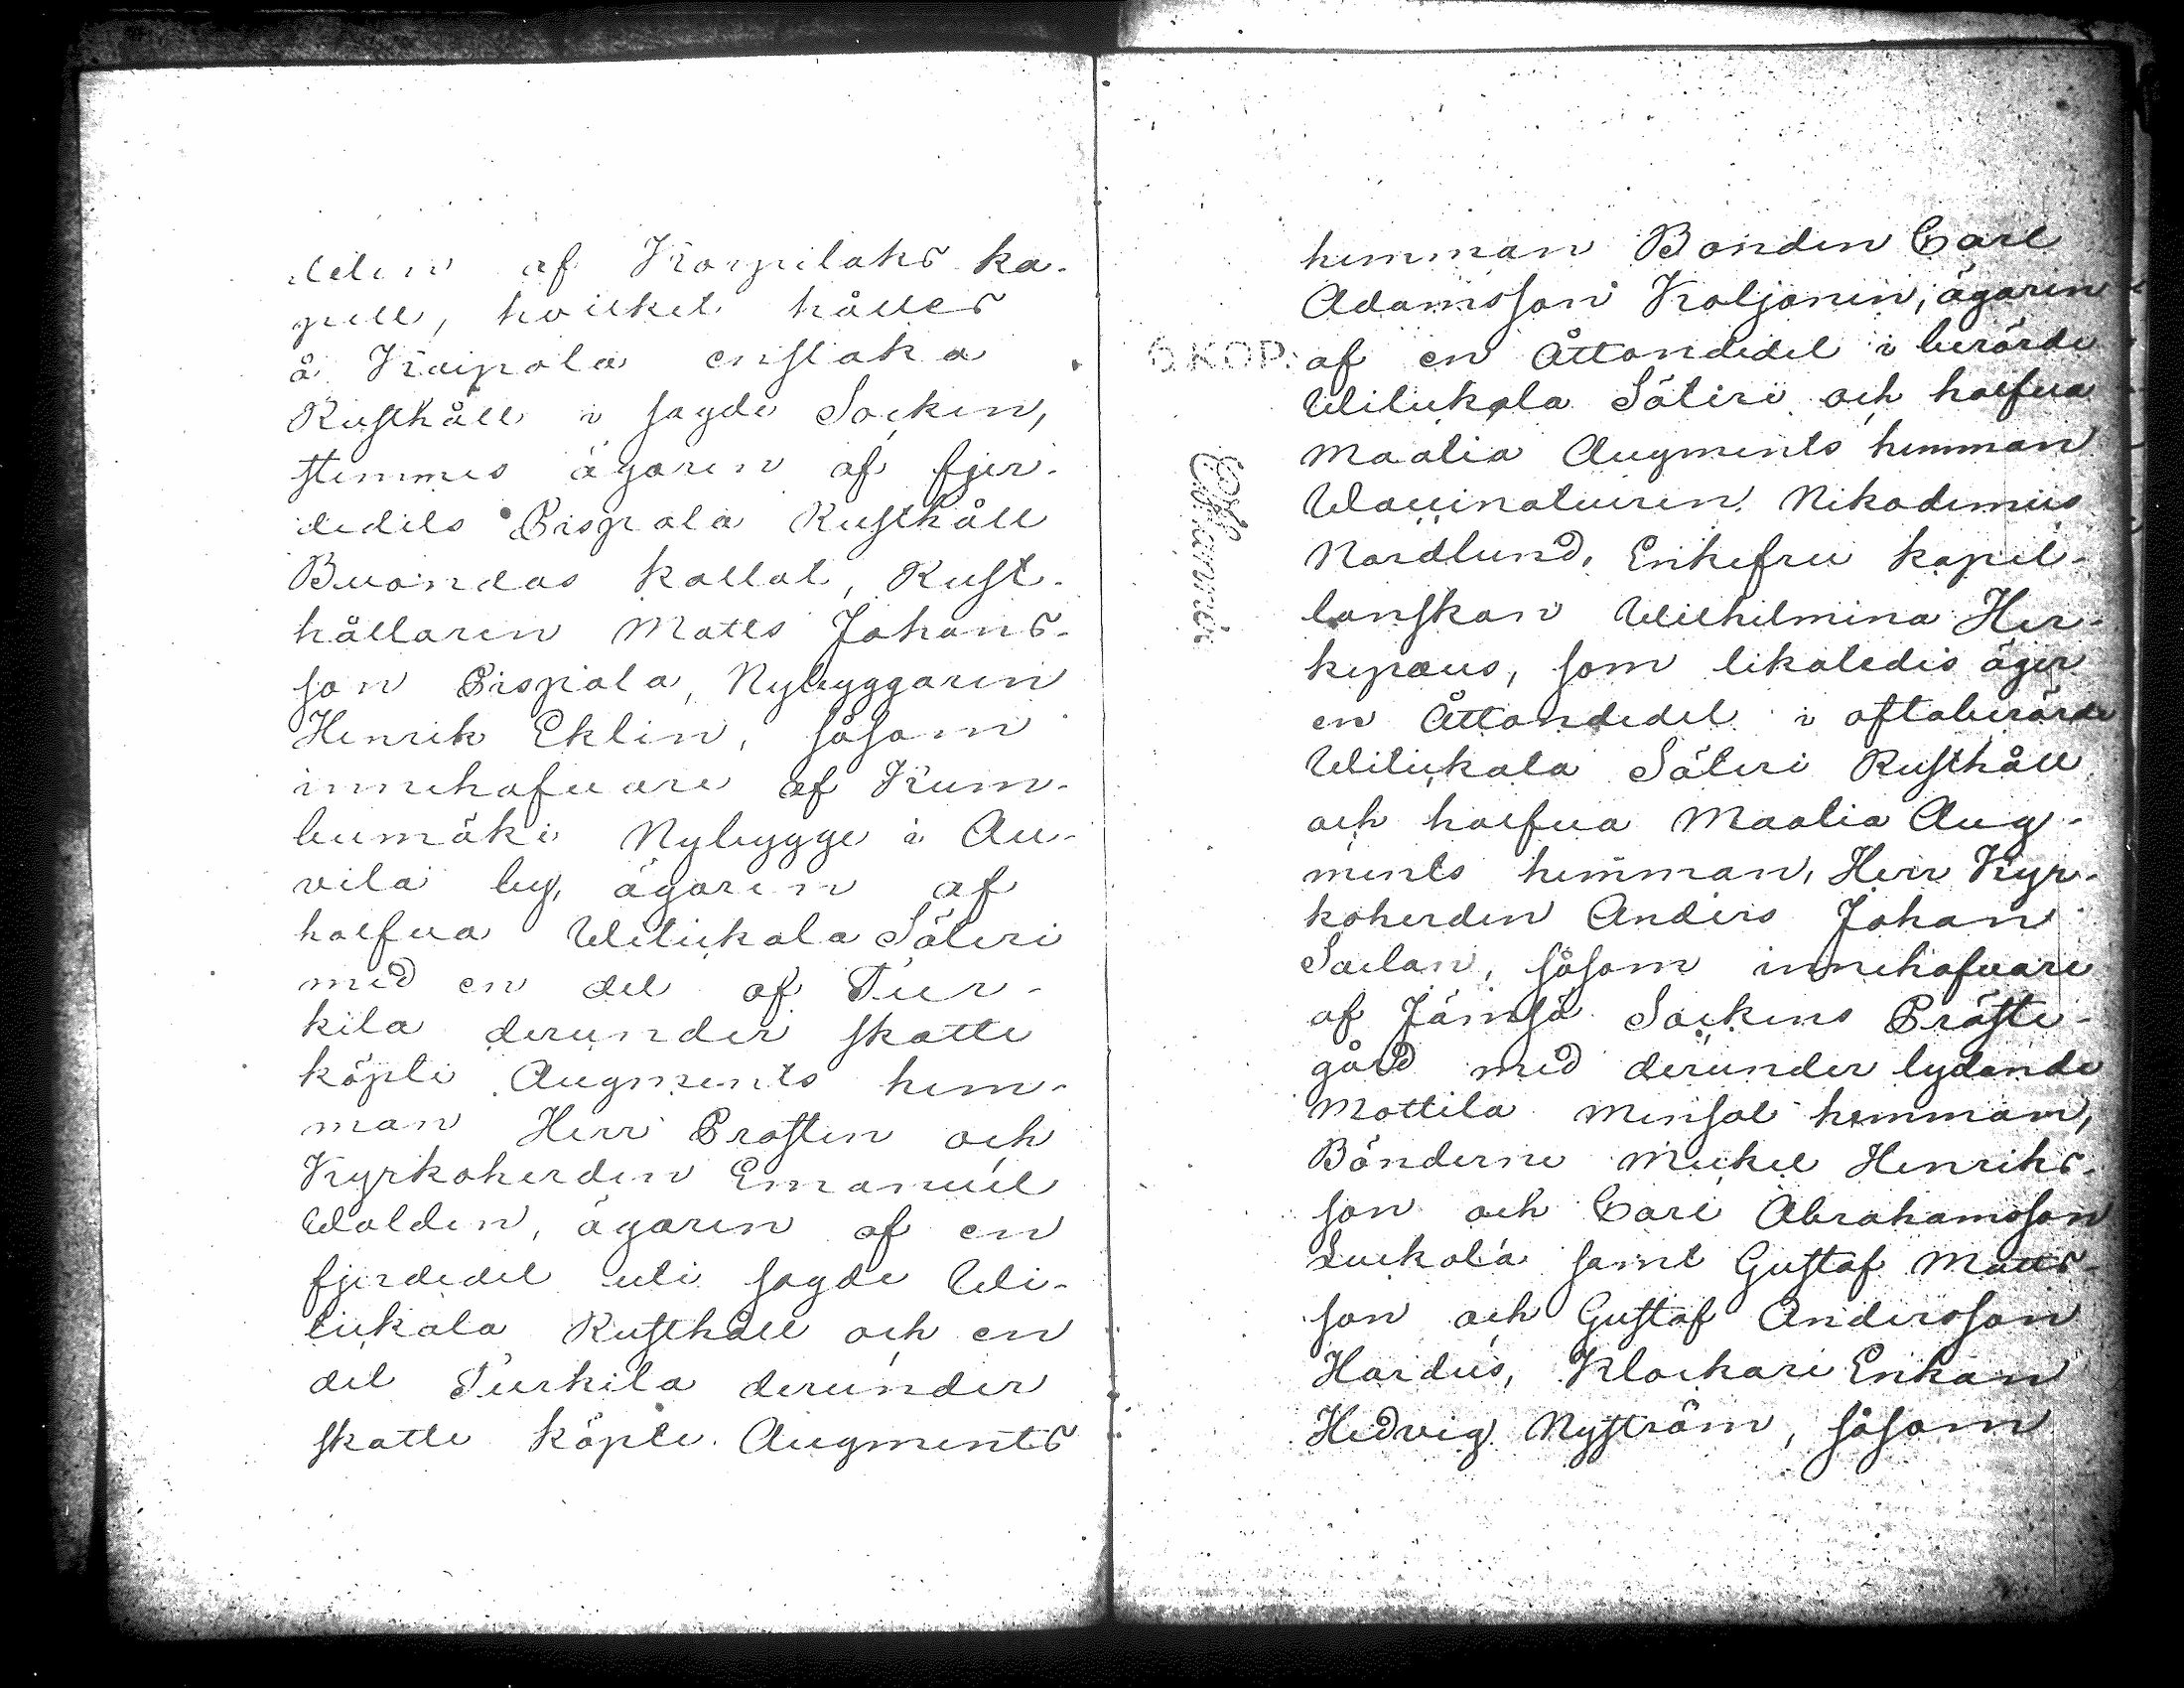 delen af Korpilaks ka-
pell, hvilket hålles
å Kaipola enstaka
Rusthåll i sagde Socken,
stemmes ägaren af fjer-
dedels Pispala Rusthåll
Buondas kallat, Rust-
hållaren Matts Johans-
son Pispala, Nybyggaren
Henrik Eklin, såsom
innehafvare af Kum-
bumäki Nybygge i Au-
vila by, ägaren af
halfva Witikala Säteri
med en del af Tur-
kila derunder skatte
köpte Augments hem-
man Herr Prosten och
Kyrkoherden Emanuel
Walden, ägaren af en
fjerdedel uti sagde Wi-
tikala Rusthåll och en
del Turkila derunder
skatte köpte Augments
hemman Bonden Carl
Adamsson Koljonen, ägaren
6 KOP: af en Åttondedel i berörde
Witikala Säteri och halfva
Maatia Augments hemman
Nikodemus
Nordlund, Enkefru kapel-
lanskan Wilhelmina Her-
kepæus, som likaledes äger
en Åttondedel i oftaberörde
Witikala Säteri Rusthåll
och halfva Maatia Aug-
ments hemman, Herr Kyr-
koherden Anders Johan
Saxlan, såsom innehafvare
af Jämsä Sockens Präste-
gård med derunder lydande
Mattila Mensal hemman,
Bönderne Mickel Henriks-
son och Carl Abrahamsson
Luckola samt Gustaf Matts-
son och Gustaf Andersson
Hardus, Klockare Enkan
Hedvig Nyström, såsom